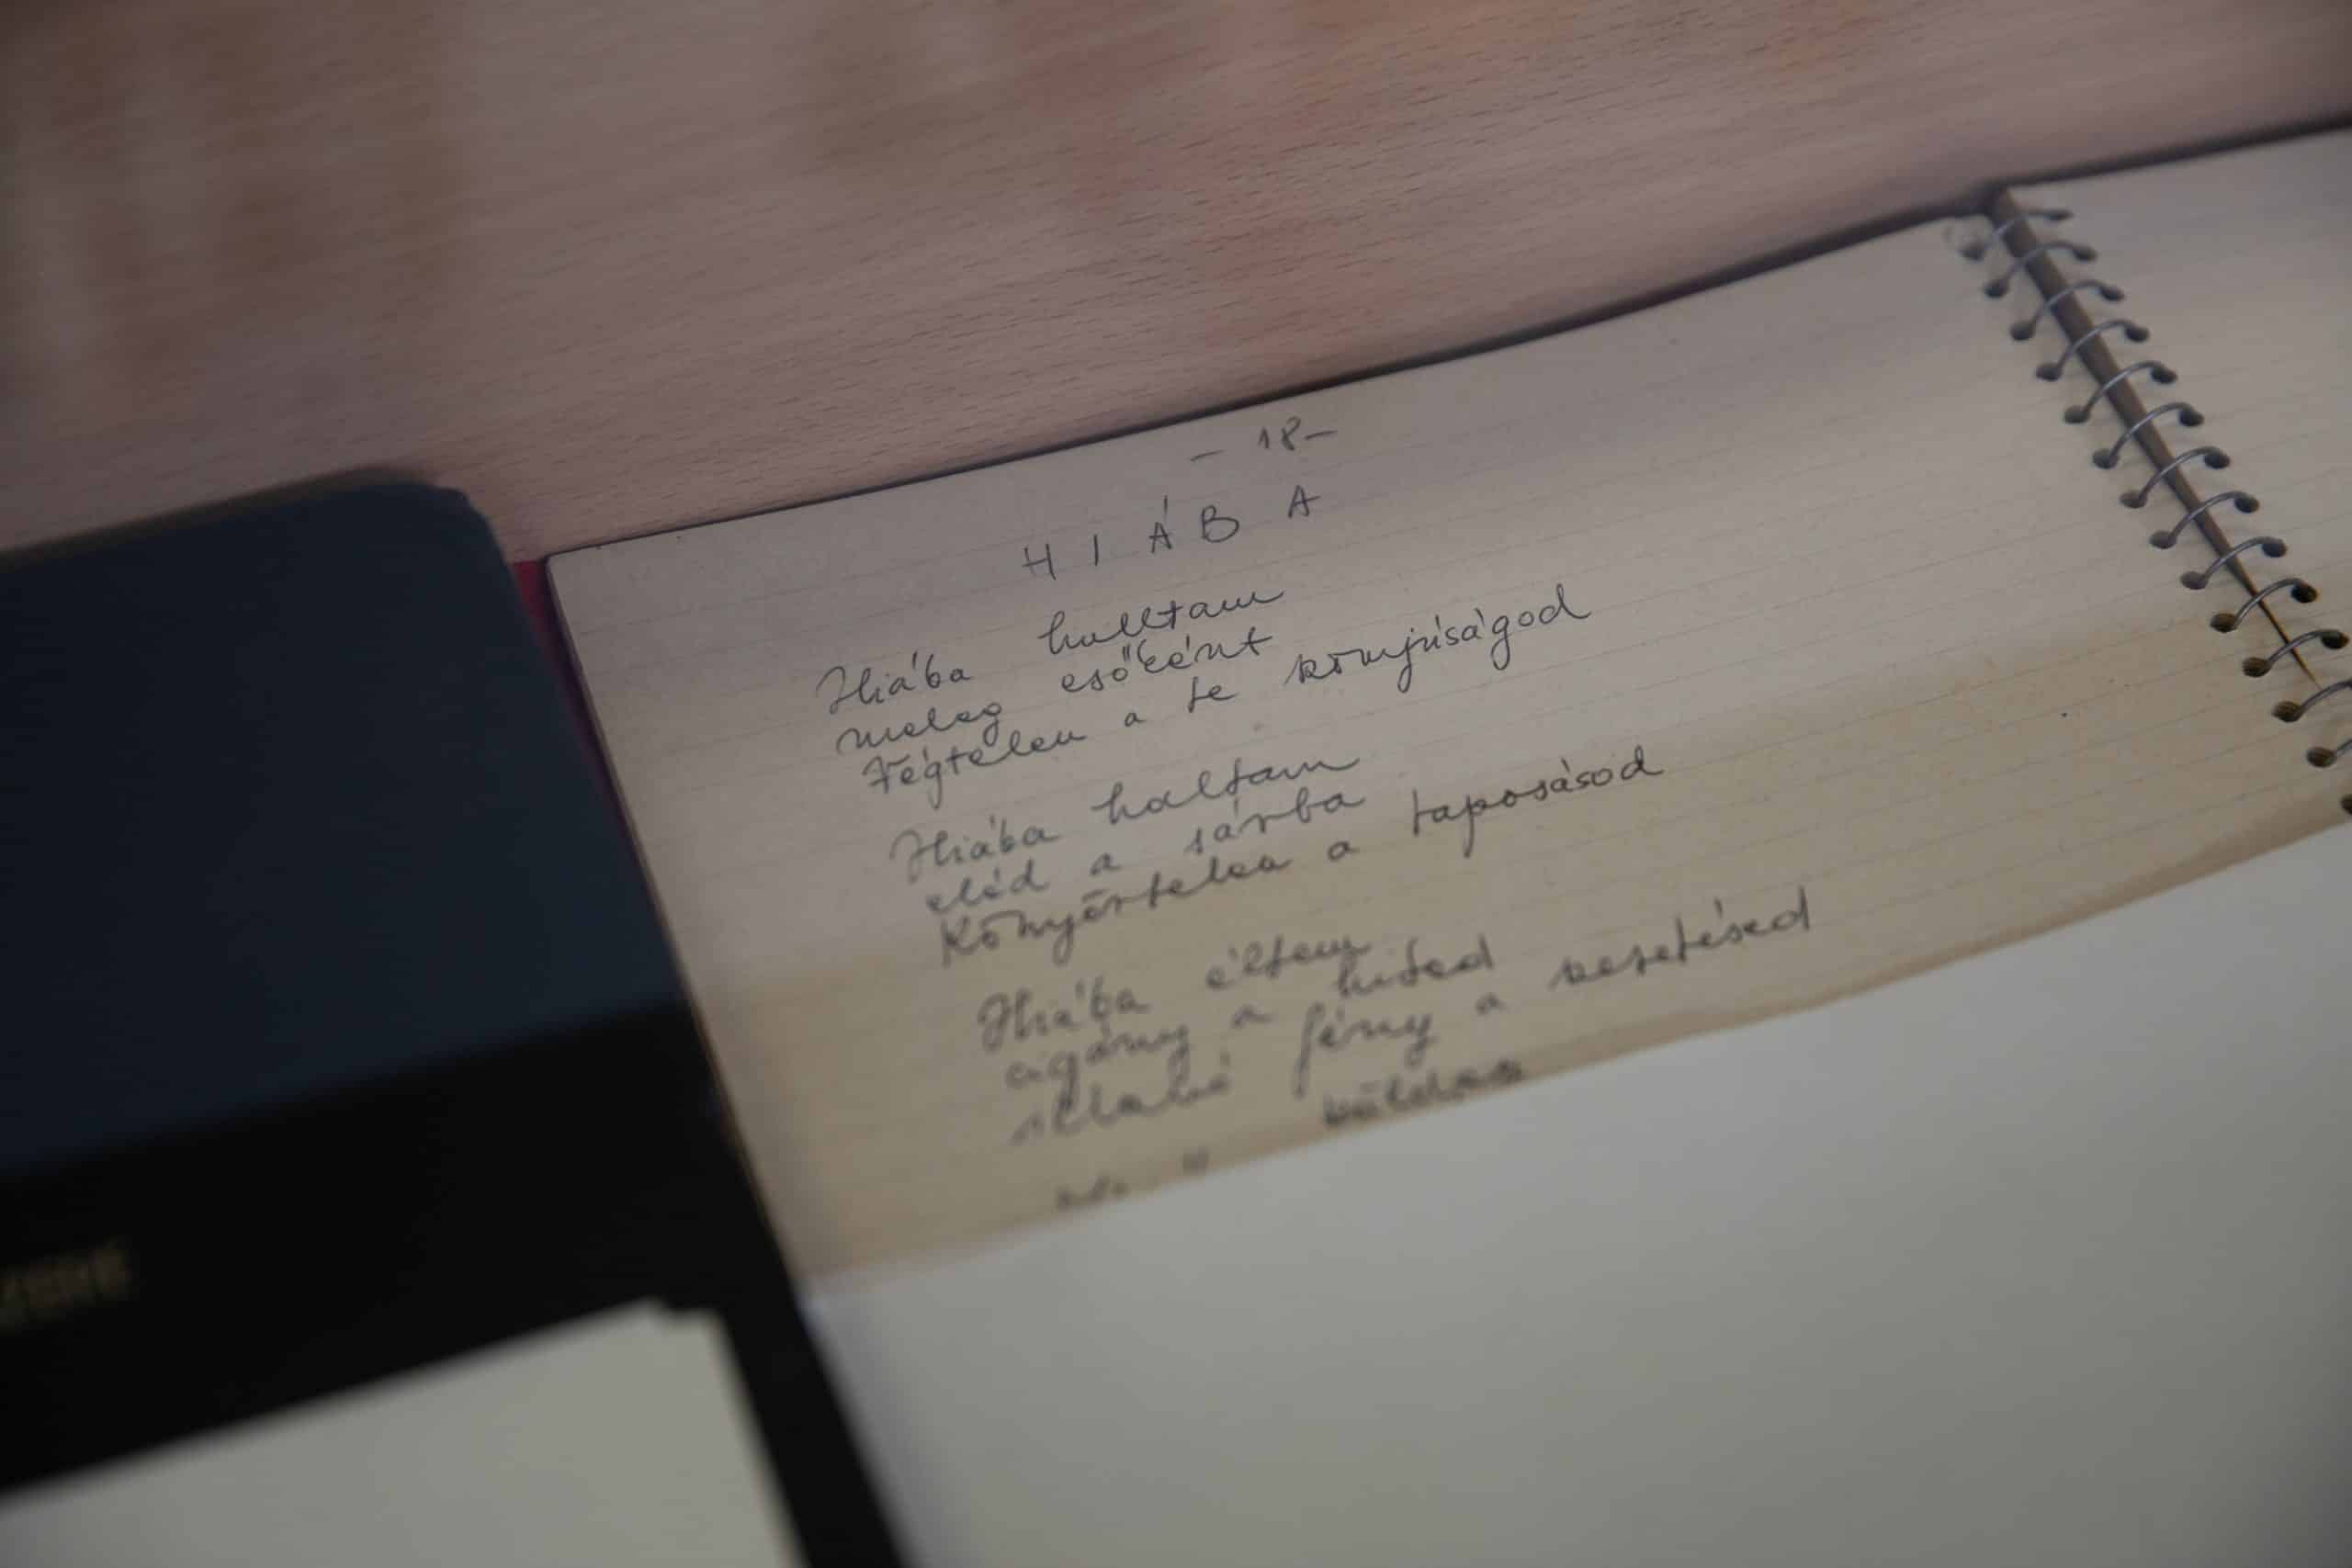 - 18 -
HIÁBA
Hiába hulltam
meleg esőként
Végtelen a te szomjúságod
Hiába haltam
eléd a sárba
Könyörtelen a taposásod
Hiába éltem
cigány a hited
fény a vezetésed